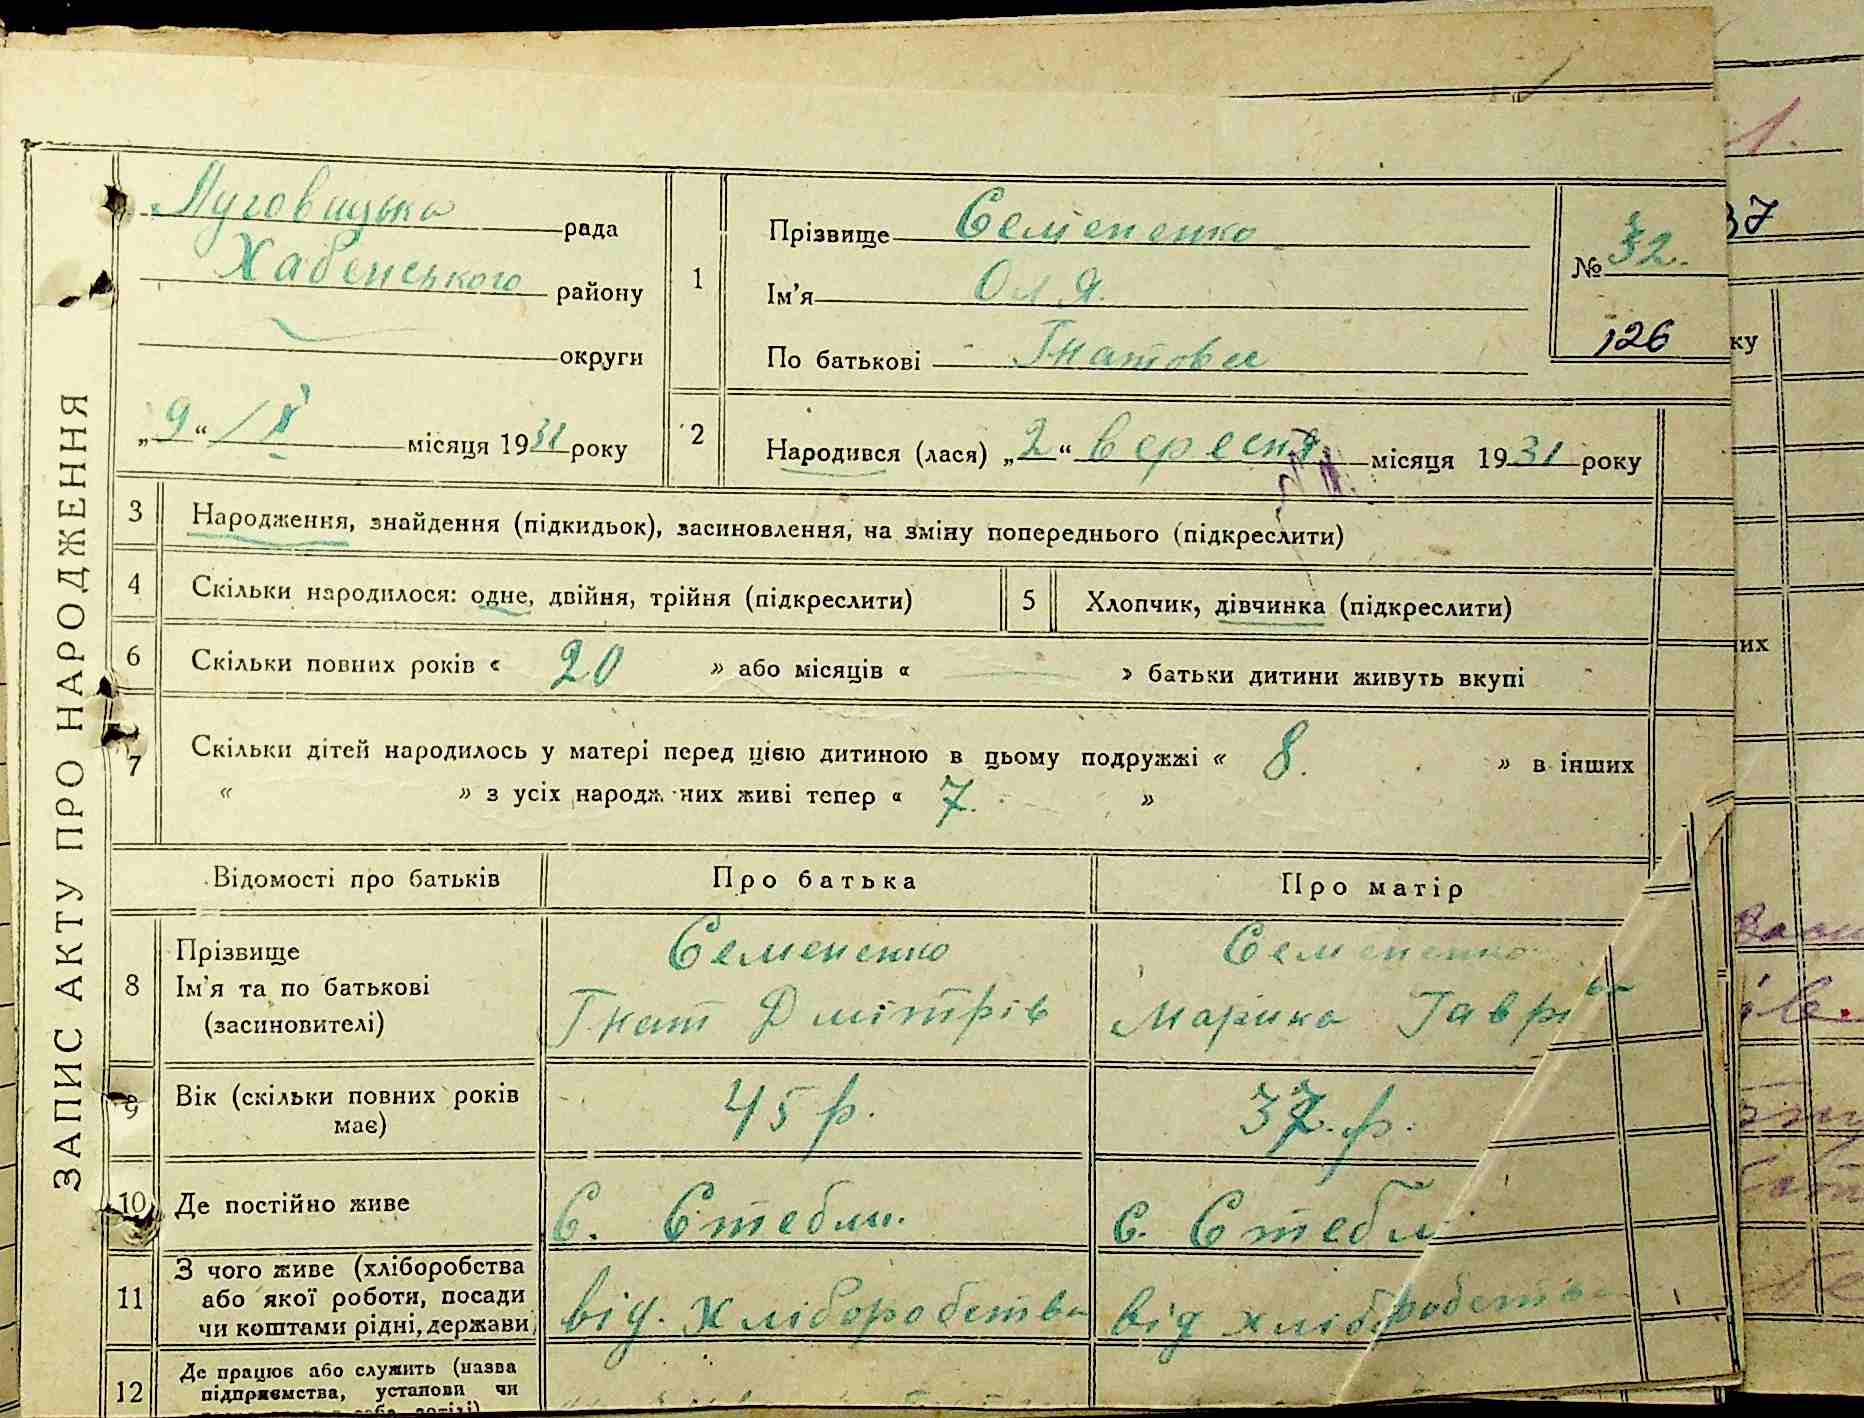 ЗАПИС АКТУ ПРО НАРОДЖЕННЯ
Луговицька рада
Хабенського району
округи
„9“ ІХ місяця 1931 року
1
Прізвище Семененко
Ім'я Оля
По батькові Гнатовна
№ 32.
126
2
Народився (лася) „2“ вересня місяця 1931 року
3 Народження, знайдення (підкидьок), засиновлення, на зміну попереднього (підкреслити)
4 Скільки народилося: одне, двійня, трійня (підкреслити)
5 Хлопчик, дівчинка (підкреслити)
6 Скільки повних років « 20 » або місяців « — » батьки дитини живуть вкупі
7 Скільки дітей народилось у матері перед цією дитиною в цьому подружжі « 8. » в інших
« » з усіх народжених живі тепер « 7. »
Відомості про батьків Про батька Про матір
8 Прізвище
Ім'я та по батькові
(засиновителі)
Семененко
Гнат Дмітрів
Семененко
Марина Гавр
9 Вік (скільки повних років
має)
45 р.
37 р.
10 Де постійно живе
С. Стебли.
С. Стебл
11 З чого живе (хліборобства
або якої роботи, посади
чи коштами рідні, держави
від. хліборобства
від хліборобства
12 Де працює або служить (назва
підприємства, установи чи
37
ку
них